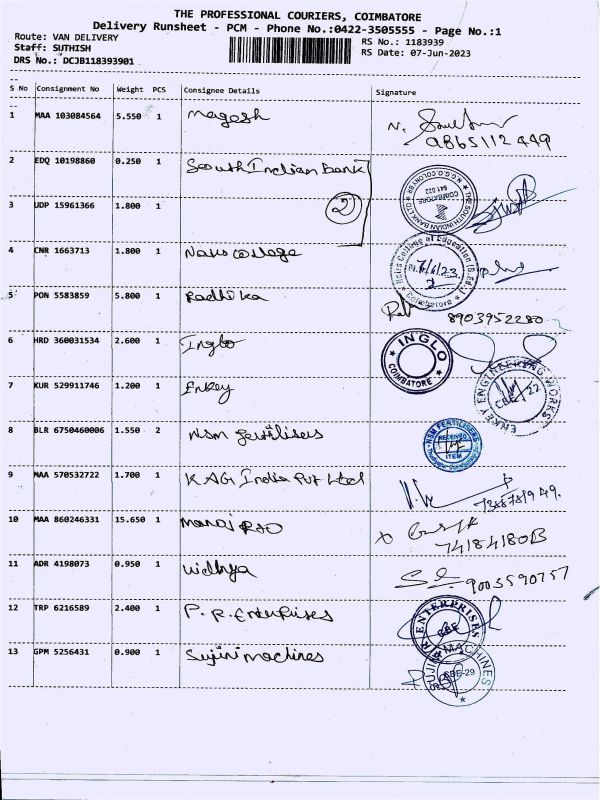 THE PROFESSIONAL COURIERS, COIMBATORE
Delivery Runsheet - PCM - Phone No.:0422-3505555 - Page No.:1
Route: VAN DELIVERY
Staff: SUTHISH
DRS No.: DCJB118393901
RS No.: 1183939
RS Date: 07-Jun-2023
S No Consignment No Weight PCS Consignee Details Signature
1 MAA 103084564 5.550 1 Magesh
9865112449
2 EDQ 10198860 0.250 1 South Indian Bank
THE SOUTH INDIAN BANK LTD N.G.G.O. COLONY BR COIMBATORE 641 022
3 UDP 15961366 1.800 1 2
4 CNR 1663713 1.800 1 Nalis College
College of Education (B.Ed.) Coimbatore
7/6/23
5 PON 5583859 5.800 1 Radhika
8903952280
6 HRD 360031534 2.600 1 Inglo
INGLO COIMBATORE
7 KUR 529911746 1.200 1 Enkey
ENKEY ENGINEERING WORKS CBE-22
8 BLR 6750460006 1.550 2 NSM fertilisers
NSM FERTILISERS RECEIVED ITEM
9 MAA 570532722 1.700 1 KAG India Pvt Ltd
10 MAA 860246331 15.650 1
11 ADR 4198073 0.950 1 Vidhya
9003590757
12 TRP 6216589 2.400 1 P.R. Enterprises
R ENTERPRISES CBE
13 GPM 5256431 0.900 1 Sujini machines
SUJINI MACHINES CBE-29